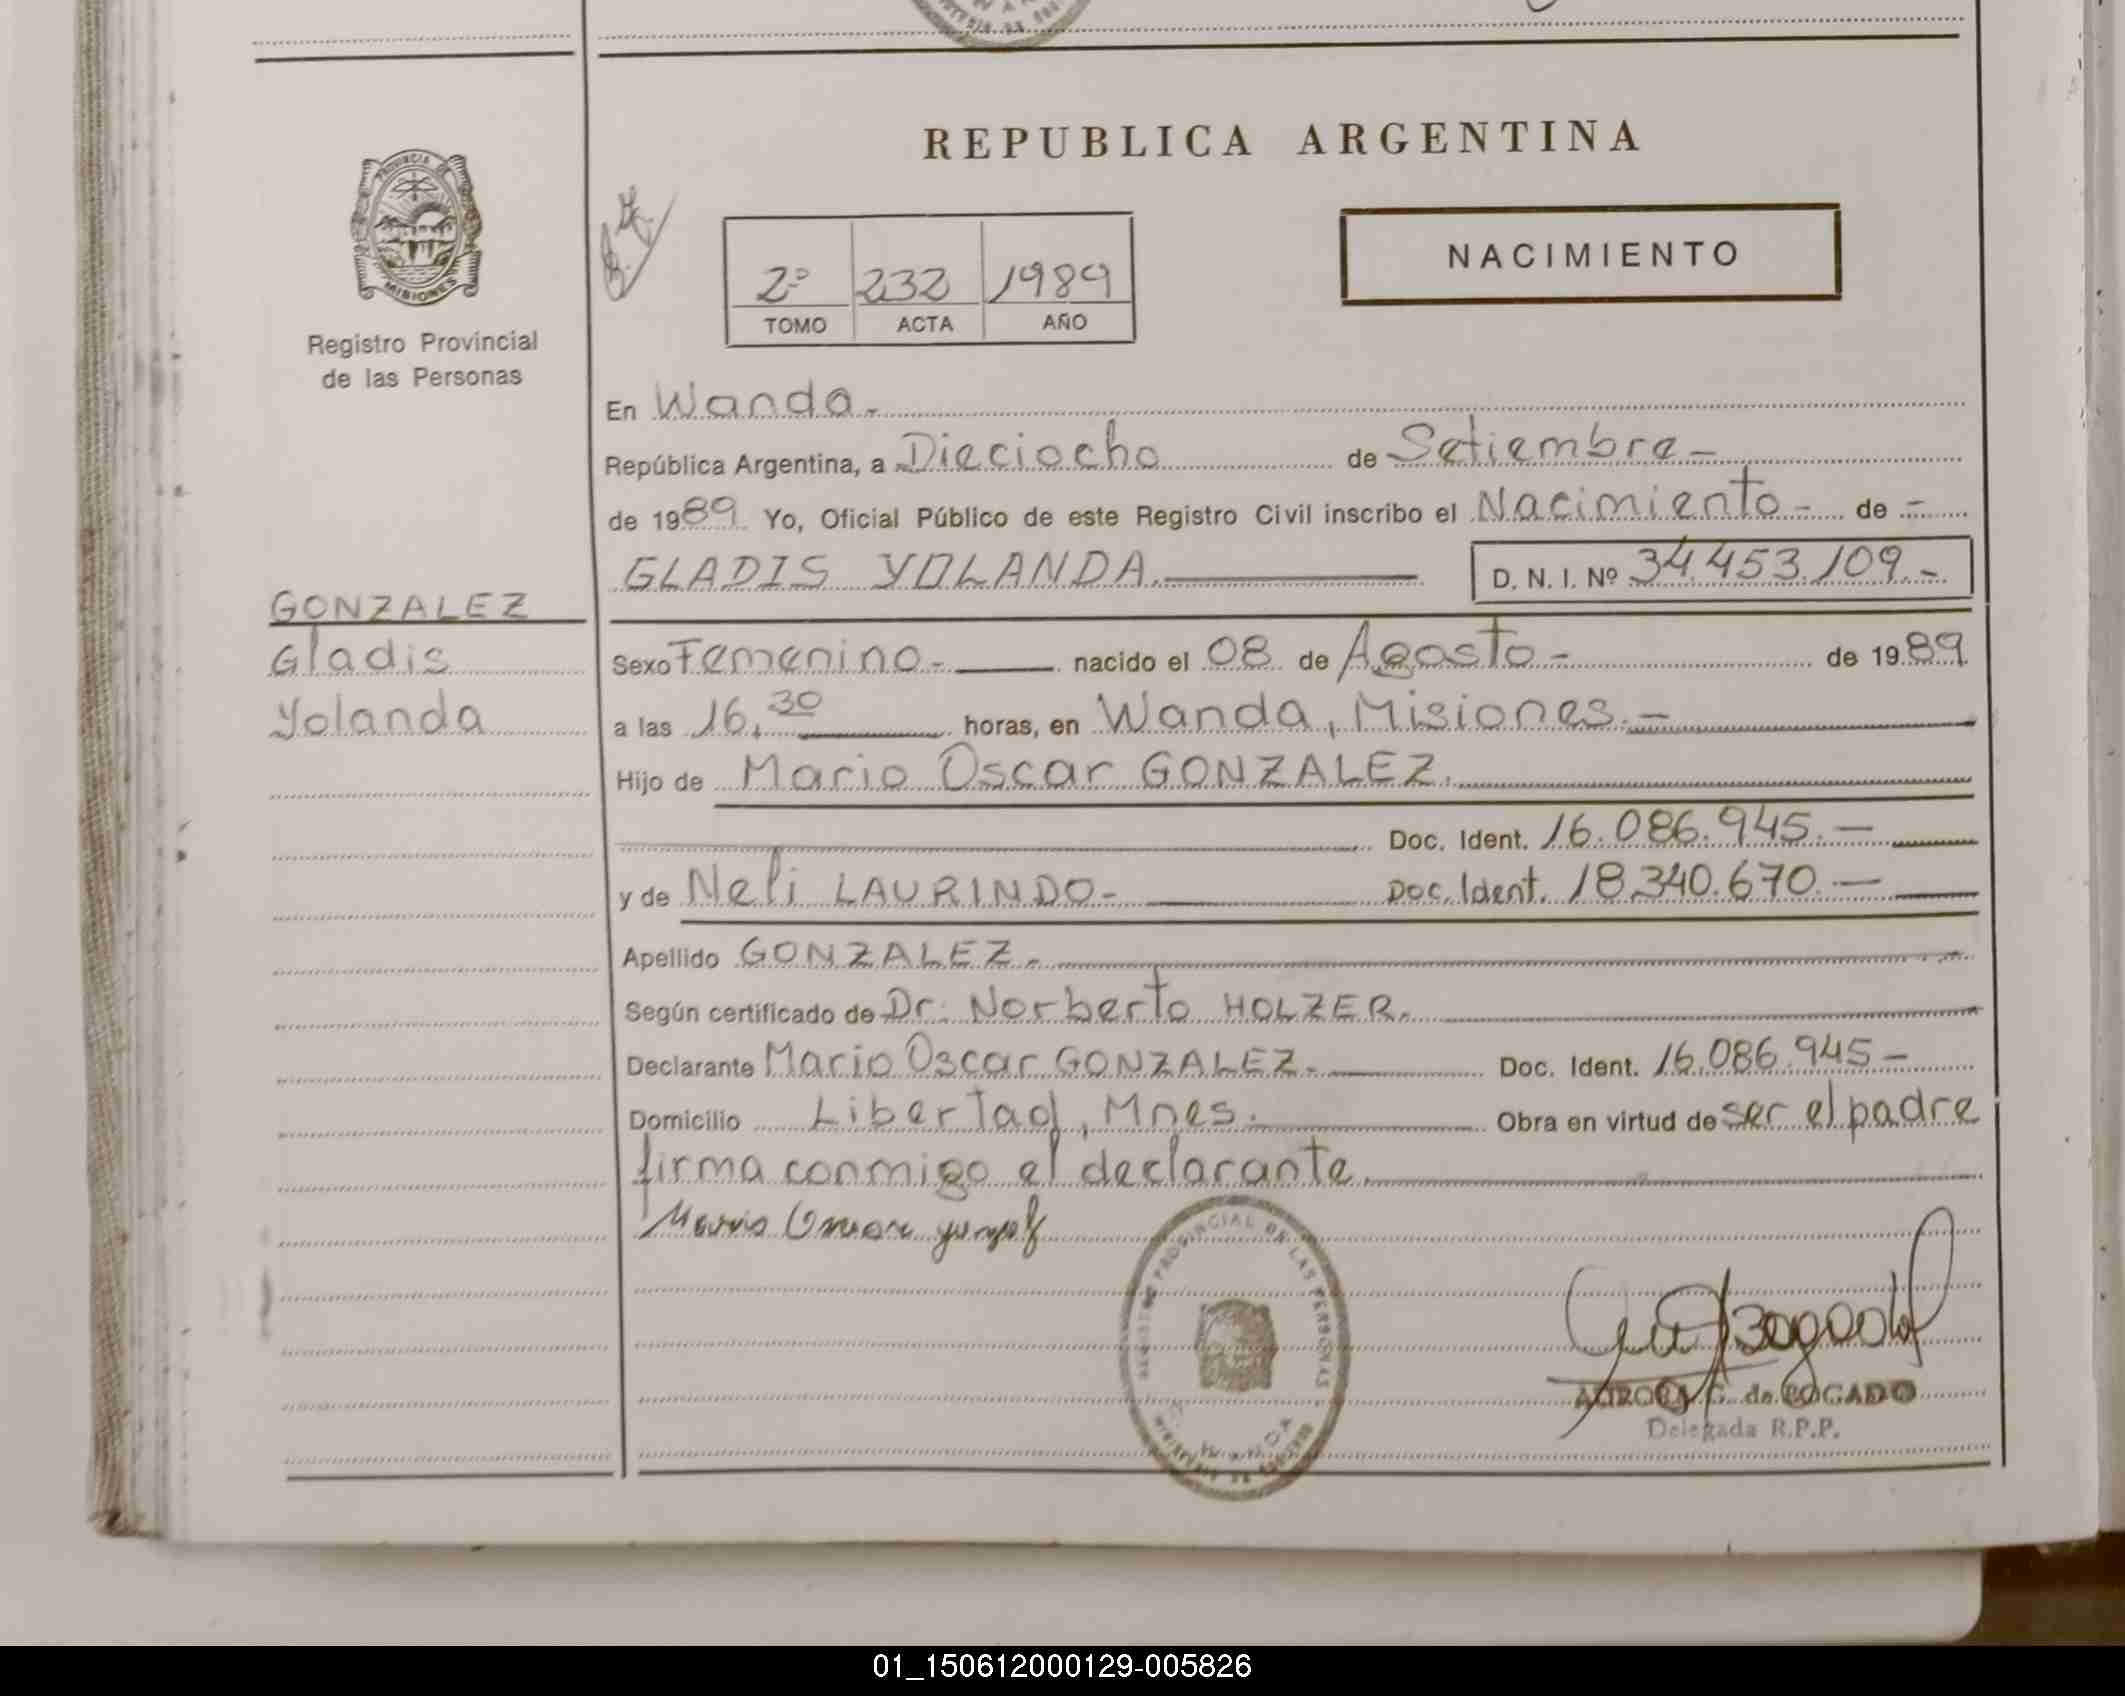 REPUBLICA ARGENTINA
PROVINCIA DE
MISIONES
Registro Provincial
de las Personas
2º 232 1989
TOMO ACTA AÑO
NACIMIENTO
En Wanda.
República Argentina, a Dieciocho de Setiembre -
de 1989 Yo, Oficial Público de este Registro Civil inscribo el Nacimiento - de -
GLADIS YOLANDA. D. N. I. Nº 34.453.109.-
GONZALEZ
Gladis
Yolanda
Sexo Femenino.- nacido el 08 de Agosto - de 1989
a las 16,30 horas, en Wanda, Misiones.-
Hijo de Mario Oscar GONZALEZ.
Doc. Ident. 16.086.945.-
y de Neli LAURINDO- Doc. Ident. 18.340.670.-
Apellido GONZALEZ.-
Según certificado de Dr. Norberto HOLZER.
Declarante Mario Oscar GONZALEZ.- Doc. Ident. 16.086.945-
Domicilio Libertad, Mnes. Obra en virtud de ser el padre
firma conmigo el declarante.
PROVINCIAL DE LAS PERSONAS
WANDA
AURORA C. de BOGADO
Delegada R.P.P.
01_150612000129-005826